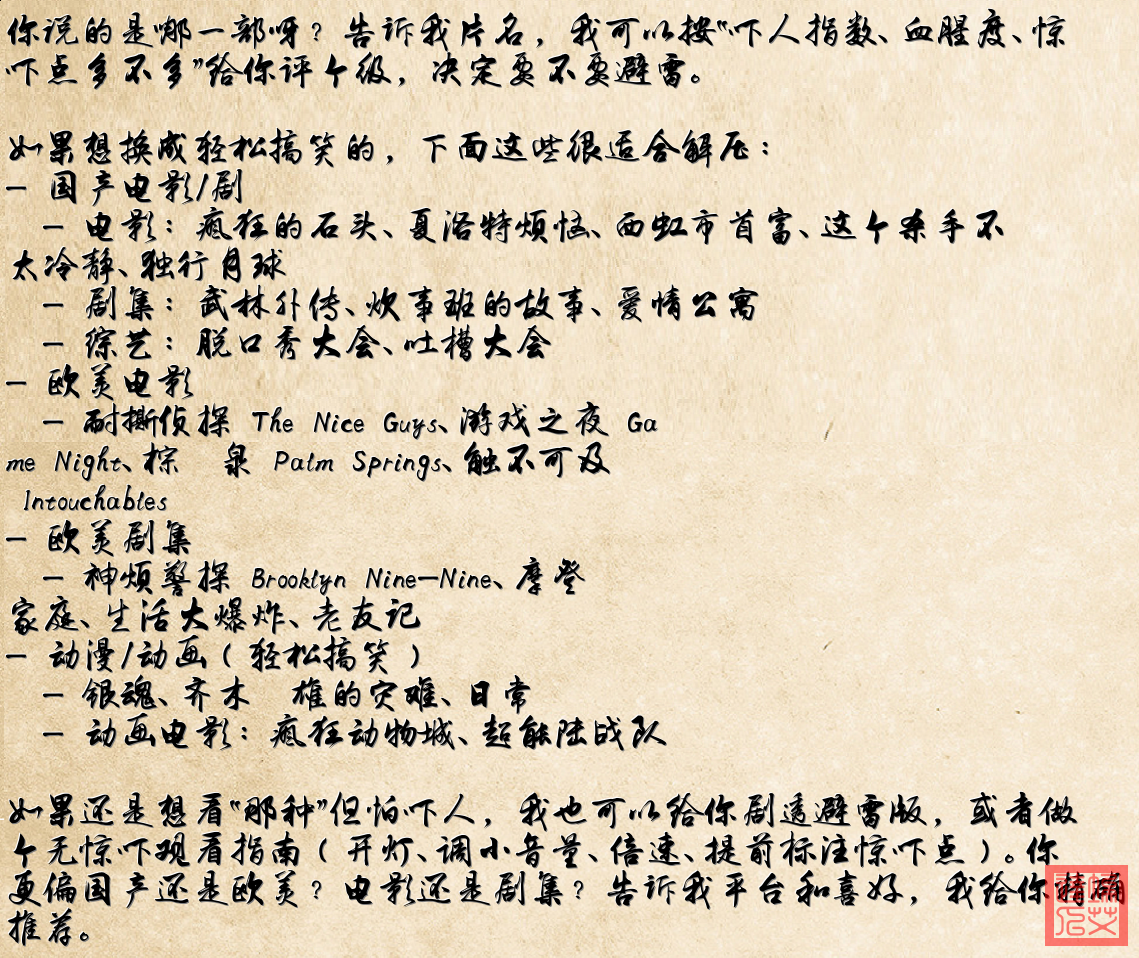 你说的是哪一部呀？告诉我片名，我可以按“吓人指数、血腥度、惊
吓点多不多”给你评个级，决定要不要避雷。
如果想换成轻松搞笑的，下面这些很适合解压：
- 国产电影/剧
- 电影：疯狂的石头、夏洛特烦恼、西虹市首富、这个杀手不
太冷静、独行月球
- 剧集：武林外传、炊事班的故事、爱情公寓
- 综艺：脱口秀大会、吐槽大会
- 欧美电影
- 耐撕侦探 The Nice Guys、游戏之夜 Ga
me Night、棕 泉 Palm Springs、触不可及
Intouchables
- 欧美剧集
- 神烦警探 Brooklyn Nine-Nine、摩登
家庭、生活大爆炸、老友记
- 动漫/动画（轻松搞笑）
- 银魂、齐木 雄的灾难、日常
- 动画电影：疯狂动物城、超能陆战队
如果还是想看“那种”但怕吓人，我也可以给你剧透避雷版，或者做
个无惊吓观看指南（开灯、调小音量、倍速、提前标注惊吓点）。你
更偏国产还是欧美？电影还是剧集？告诉我平台和喜好，我给你精确
推荐。